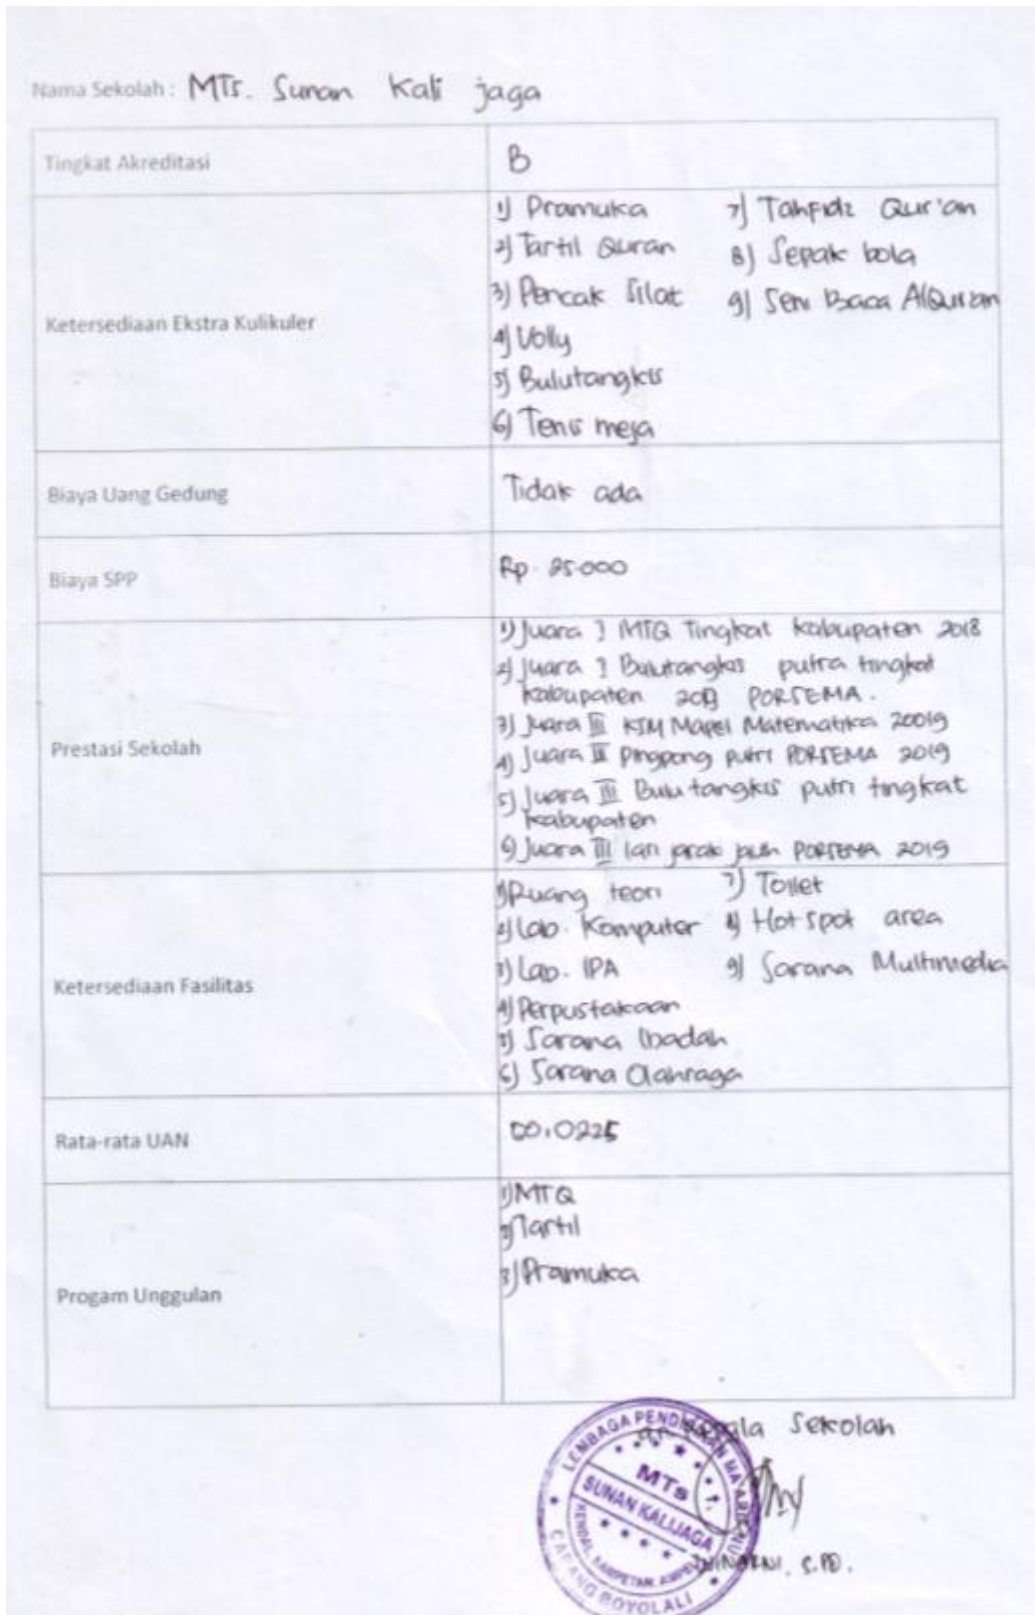 Nama Sekolah : MTs. Sunan Kali jaga
Tingkat Akreditasi B
Ketersediaan Ekstra Kulikuler
1) Pramuka
2) Tartil Quran
3) Pencak Silat
4) Volly
5) Bulutangkis
6) Tenis meja
7) Tahfidz Qur'an
8) Sepak bola
9) Seni Baca AlQur'an
Biaya Uang Gedung Tidak ada
Biaya SPP Rp.
Prestasi Sekolah
1) Juara I MTQ Tingkat Kabupaten 2018
2) Juara I Bulutangkis putra tingkat
kabupaten PORSEMA.
3) Juara III KSM Mapel Matematika 20019
4) Juara II Pingpong putri PORSEMA 2019
5) Juara III Bulu tangkis putri tingkat
kabupaten
6) Juara III lari jarak jauh PORSEMA 2019
Ketersediaan Fasilitas
1) Ruang teori
2) Lab. Komputer
3) Lab. IPA
4) Perpustakaan
5) Sarana Ibadah
6) Sarana Olahraga
7) Toilet
8) Hot spot area
9) Sarana Multimedia
Rata-rata UAN
Progam Unggulan
1) MTQ
2) Tartil
3) Pramuka
an Kepala Sekolah
LENBAGA PENDIDIKAN MA'ARIF NU
MTs
SUNAN KALIJAGA
CABANG BOYOLALI
S.PD.